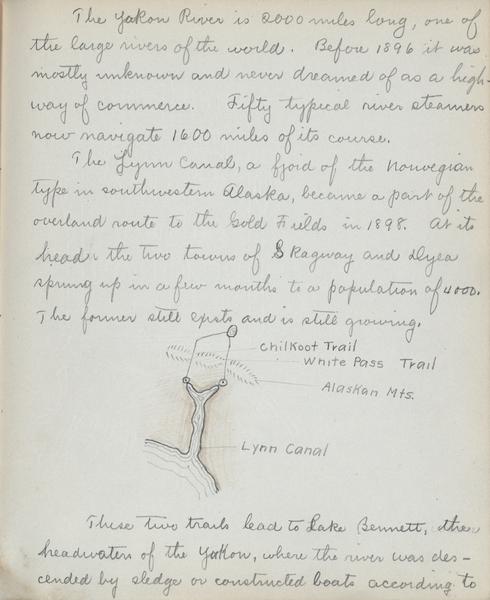 The Yukon River is 2000 miles long, one of
the large rivers of the world. Before 1896 it was
mostly unknown and never dreamed of as a high-
way of commerce. Fifty typical river steamers
now navigate 1600 miles of its course.
The Lynn Canal, a fjoid of the Norwegian
type in southwestern Alaska, became a part of the
overland route to the Gold Fields in 1898. At its
head the two towns of Skagway and Dyea
sprung up in a few months to a population of 4000.
The former still exists and is still growing.
Chilkoot Trail
White Pass Trail
Alaskan Mts.
Lynn Canal
These two trails lead to Lake Bennett, the
headwaters of the Yukon, where the river was des-
cended by sledge or constructed boats according to